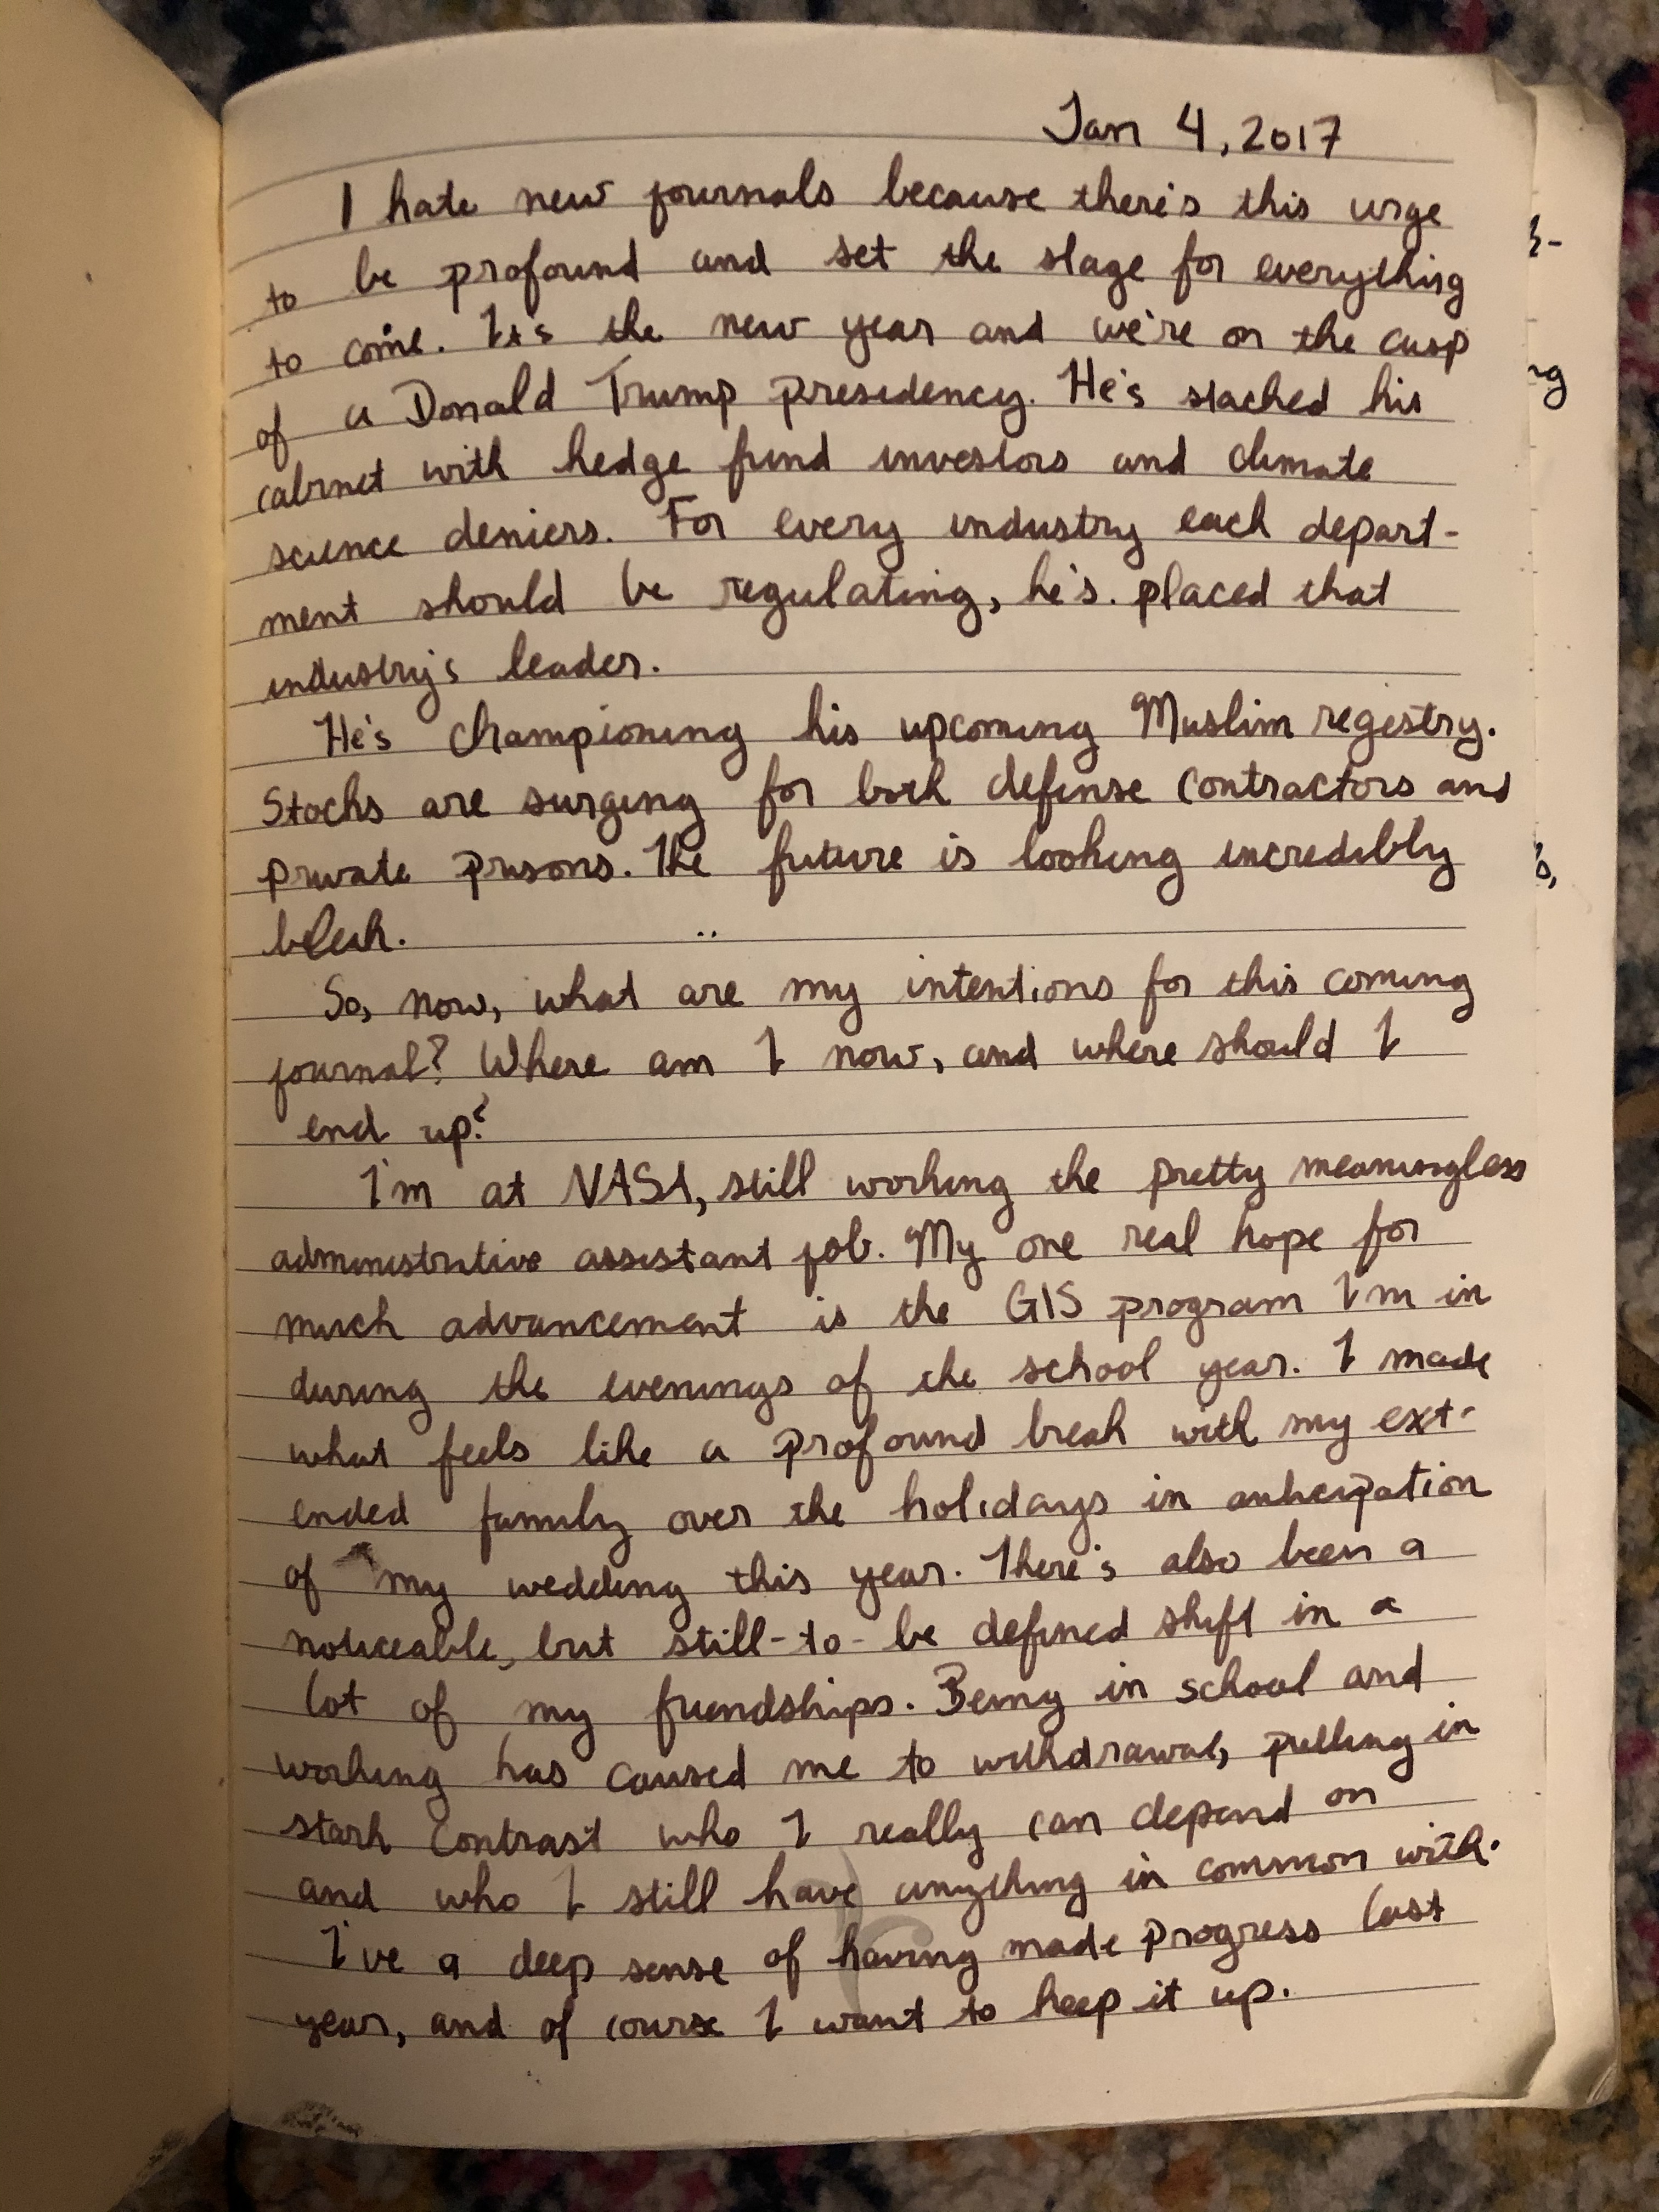 Jan 4, 2017
I hate new journals because there's this urge
to be profound and set the stage for everything
to come. It's the new year and we're on the cusp
of a Donald Trump presidency. He's stacked his
cabinet with hedge fund investors and climate
science deniers. For every industry each depart-
ment should be regulating, he's placed that
industry's leader.
He's championing his upcoming Muslim registry.
Stocks are surging for both defense contractors and
private prisons. The future is looking incredibly
bleak.
So, now, what are my intentions for this coming
journal? Where am I now, and where should I
end up?
I'm at NASA, still working the pretty meaningless
administrative assistant job. My one real hope for
much advancement is the GIS program I'm in
during the evenings of the school year. I made
what feels like a profound break with my ext-
ended family over the holidays in anticipation
of my wedding this year. There's also been a
noticeable, but still-to-be defined shift in a
lot of my friendships. Being in school and
working has caused me to withdrawal, pulling in
stark contrast who I really can depend on
and who I still have anything in common with.
I've a deep sense of having made progress last
year, and of course I want to keep it up.